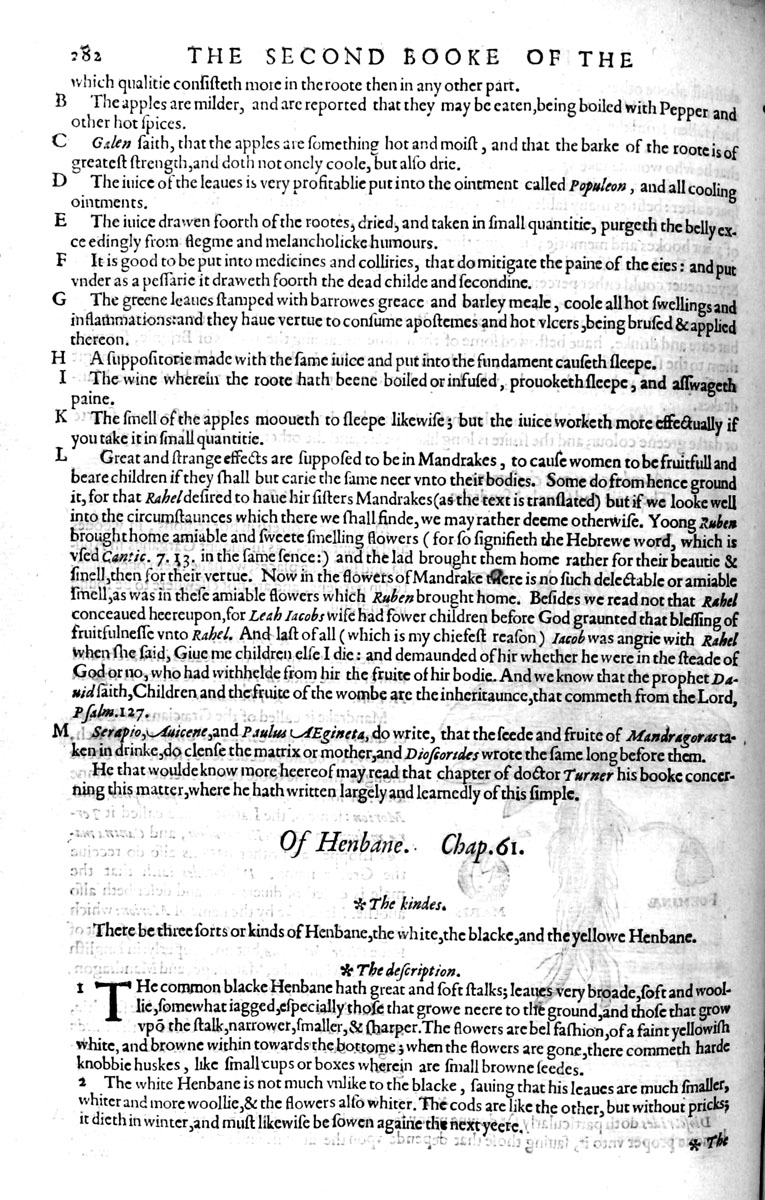 282 THE SECOND BOOKE OF THE
which qualitie consisteth more in the roote then in any other part.
B The apples are milder, and are reported that they may be eaten, being boiled with Pepper and
other hot spices.
C Galen saith, that the apples are something hot and moist, and that the barke of the roote is of
greatest strength, and doth not onely coole, but also drie.
D The iuice of the leaues is very profitablie put into the ointment called Populeon, and all cooling
ointments.
E The iuice drawen foorth of the rootes, dried, and taken in small quantitie, purgeth the belly ex-
ceedingly from flegme and melancholicke humours.
F It is good to be put into medicines and colliries, that do mitigate the paine of the eies: and put
vnder as a pessarie it draweth foorth the dead childe and secondine.
G The greene leaues stamped with barrowes greace and barley meale, coole all hot swellings and
inflammations: and they haue vertue to consume apostemes and hot vlcers, being brused & applied
thereon.
H A suppositorie made with the same iuice and put into the fundament causeth sleepe.
I The wine wherein the roote hath beene boiled or infused, prouoketh sleepe, and asswageth
paine.
K The smell of the apples mooueth to sleepe likewise; but the iuice worketh more effectually if
you take it in small quantitie.
L Great and strange effects are supposed to be in Mandrakes, to cause women to be fruitfull and
beare children if they shall but carie the same neer vnto their bodies. Some do from hence ground
it, for that Rahel desired to haue hir sisters Mandrakes (as the text is translated) but if we looke well
into the circumstaunces which there we shall finde, we may rather deeme otherwise. Yoong Ruben
brought home amiable and sweete smelling flowers (for so signifieth the Hebrewe word, which is
vsed Cantic. 7. 13. in the same sence:) and the lad brought them home rather for their beautie &
smell, then for their vertue. Now in the flowers of Mandrake there is no such delectable or amiable
smell, as was in these amiable flowers which Ruben brought home. Besides we read not that Rahel
conceaued heereupon, for Leah Iacobs wife had fower children before God graunted that blessing of
fruitfulnesse vnto Rahel. And last of all (which is my chiefest reason) Iacob was angrie with Rahel
when she said, Giue me children else I die: and demaunded of hir whether he were in the steade of
God or no, who had withhelde from hir the fruite of hir bodie. And we know that the prophet Da-
uid saith, Children and the fruite of the wombe are the inheritaunce, that commeth from the Lord,
Psalm. 127.
M Serapio, Auicene, and Paulus AEgineta, do write, that the seede and fruite of Mandragoras ta-
ken in drinke, do clense the matrix or mother, and Dioscorides wrote the same long before them.
He that woulde know more heereof may read that chapter of doctor Turner his booke concer-
ning this matter, where he hath written largely and learnedly of this simple.
Of Henbane. Chap. 61.
❊ The kindes.
There be three sorts or kinds of Henbane, the white, the blacke, and the yellowe Henbane.
❊ The description.
1 THe common blacke Henbane hath great and soft stalks; leaues very broade, soft and wool-
lie, somewhat iagged, especially those that growe neere to the ground, and those that grow
vpō the stalk, narrower, smaller, & sharper. The flowers are bel fashion, of a faint yellowish
white, and browne within towards the bottome; when the flowers are gone, there commeth harde
knobbie huskes, like small cups or boxes wherein are small browne seedes.
2 The white Henbane is not much vnlike to the blacke, sauing that his leaues are much smaller,
whiter and more woollie, & the flowers also whiter. The cods are like the other, but without pricks;
it dieth in winter, and must likewise be sowen againe the next yeere.
❊ The